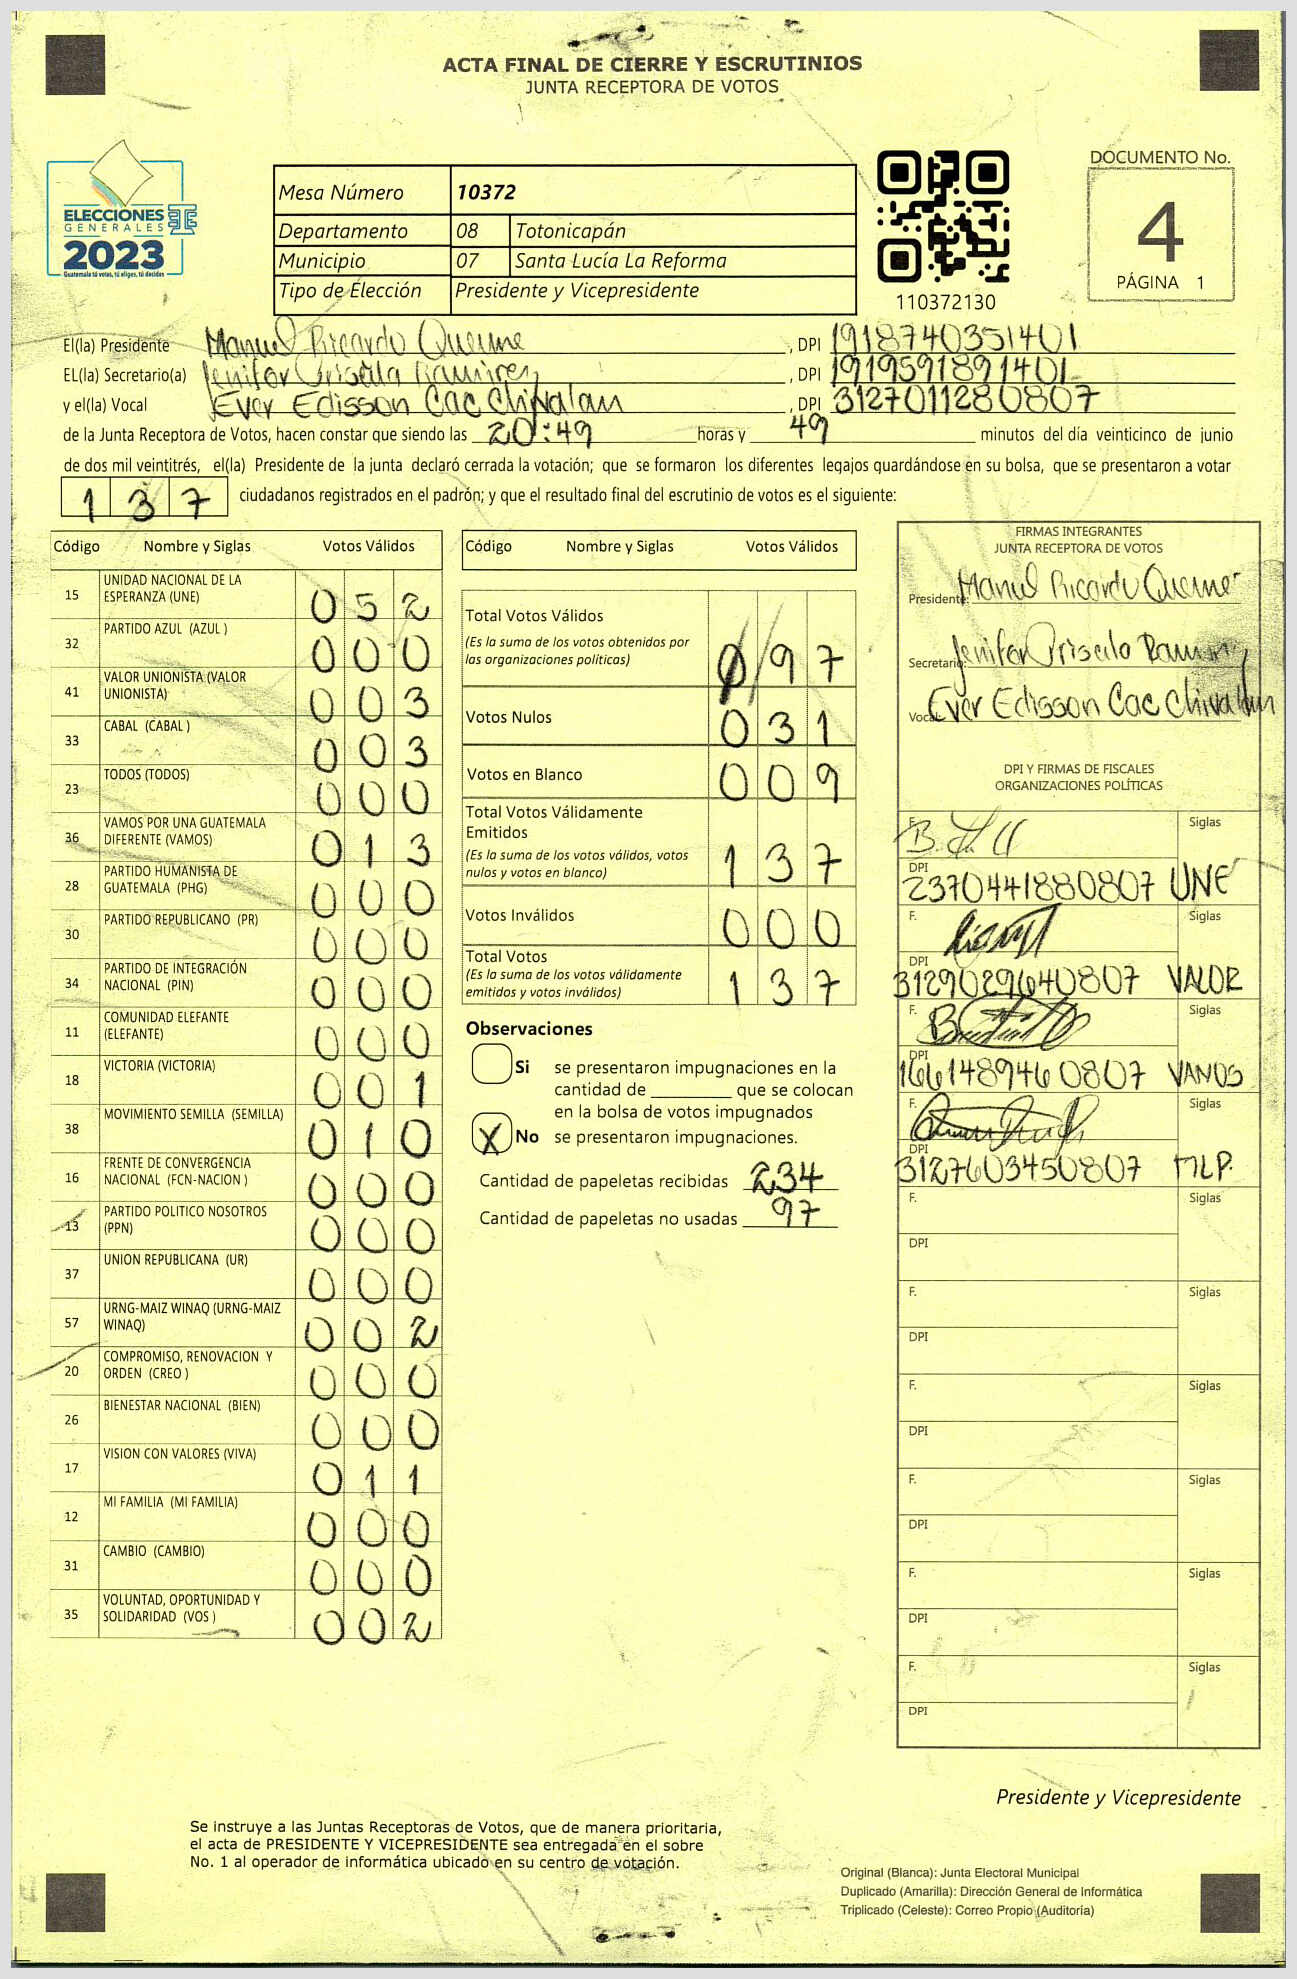 ACTA FINAL DE CIERRE Y ESCRUTINIOS
JUNTA RECEPTORA DE VOTOS
ELECCIONES
GENERALES
2023
Guatemala tú votas, tú eliges, tú decides
Mesa Número 10372
Departamento 08 Totonicapán
Municipio 07 Santa Lucía La Reforma
Tipo de Elección Presidente y Vicepresidente
110372130
DOCUMENTO No.
4
PÁGINA 1
El(la) Presidente Manuel Ricardo Queme , DPI 1918740351401
EL(la) Secretario(a) Jenifer Priscila Ramirez , DPI 1919591891401
y el(la) Vocal Ever Edisson Cac Chivalan , DPI 3127011280807
de la Junta Receptora de Votos, hacen constar que siendo las 20:49 horas y 49 minutos del día veinticinco de junio
de dos mil veintitrés, el(la) Presidente de la junta declaró cerrada la votación; que se formaron los diferentes legajos guardándose en su bolsa, que se presentaron a votar
137 ciudadanos registrados en el padrón; y que el resultado final del escrutinio de votos es el siguiente:
Código Nombre y Siglas Votos Válidos
15 UNIDAD NACIONAL DE LA ESPERANZA (UNE) 052
32 PARTIDO AZUL (AZUL ) 000
41 VALOR UNIONISTA (VALOR UNIONISTA) 003
33 CABAL (CABAL ) 003
23 TODOS (TODOS) 000
36 VAMOS POR UNA GUATEMALA DIFERENTE (VAMOS) 013
28 PARTIDO HUMANISTA DE GUATEMALA (PHG) 000
30 PARTIDO REPUBLICANO (PR) 000
34 PARTIDO DE INTEGRACIÓN NACIONAL (PIN) 000
11 COMUNIDAD ELEFANTE (ELEFANTE) 000
18 VICTORIA (VICTORIA) 001
38 MOVIMIENTO SEMILLA (SEMILLA) 010
16 FRENTE DE CONVERGENCIA NACIONAL (FCN-NACION ) 000
13 PARTIDO POLITICO NOSOTROS (PPN) 000
37 UNION REPUBLICANA (UR) 000
57 URNG-MAIZ WINAQ (URNG-MAIZ WINAQ) 002
20 COMPROMISO, RENOVACION Y ORDEN (CREO ) 000
26 BIENESTAR NACIONAL (BIEN) 000
17 VISION CON VALORES (VIVA) 011
12 MI FAMILIA (MI FAMILIA) 000
31 CAMBIO (CAMBIO) 000
35 VOLUNTAD, OPORTUNIDAD Y SOLIDARIDAD (VOS ) 002
Código Nombre y Siglas Votos Válidos
Total Votos Válidos 097
(Es la suma de los votos obtenidos por
las organizaciones políticas)
Votos Nulos 031
Votos en Blanco 009
Total Votos Válidamente
Emitidos 137
(Es la suma de los votos válidos, votos
nulos y votos en blanco)
Votos Inválidos 000
Total Votos 137
(Es la suma de los votos válidamente
emitidos y votos inválidos)
Observaciones
Si se presentaron impugnaciones en la
cantidad de ________ que se colocan
en la bolsa de votos impugnados
X No se presentaron impugnaciones.
Cantidad de papeletas recibidas 234
Cantidad de papeletas no usadas 97
FIRMAS INTEGRANTES
JUNTA RECEPTORA DE VOTOS
Presidente: Manuel Ricardo Queme
Secretario: Jenifer Priscila Ramirez
Vocal: Ever Edisson Cac Chivalan
DPI Y FIRMAS DE FISCALES
ORGANIZACIONES POLÍTICAS
F. Siglas
DPI 2370441880807 UNE
F. Siglas
DPI 3129029640807 VALOR
F. Siglas
DPI 1661489460807 VAMOS
F. Siglas
DPI 3127603450807 MLP.
F. Siglas
DPI
F. Siglas
DPI
F. Siglas
DPI
F. Siglas
DPI
F. Siglas
DPI
F. Siglas
DPI
Presidente y Vicepresidente
Se instruye a las Juntas Receptoras de Votos, que de manera prioritaria,
el acta de PRESIDENTE Y VICEPRESIDENTE sea entregada en el sobre
No. 1 al operador de informática ubicado en su centro de votación.
Original (Blanca): Junta Electoral Municipal
Duplicado (Amarilla): Dirección General de Informática
Triplicado (Celeste): Correo Propio (Auditoría)